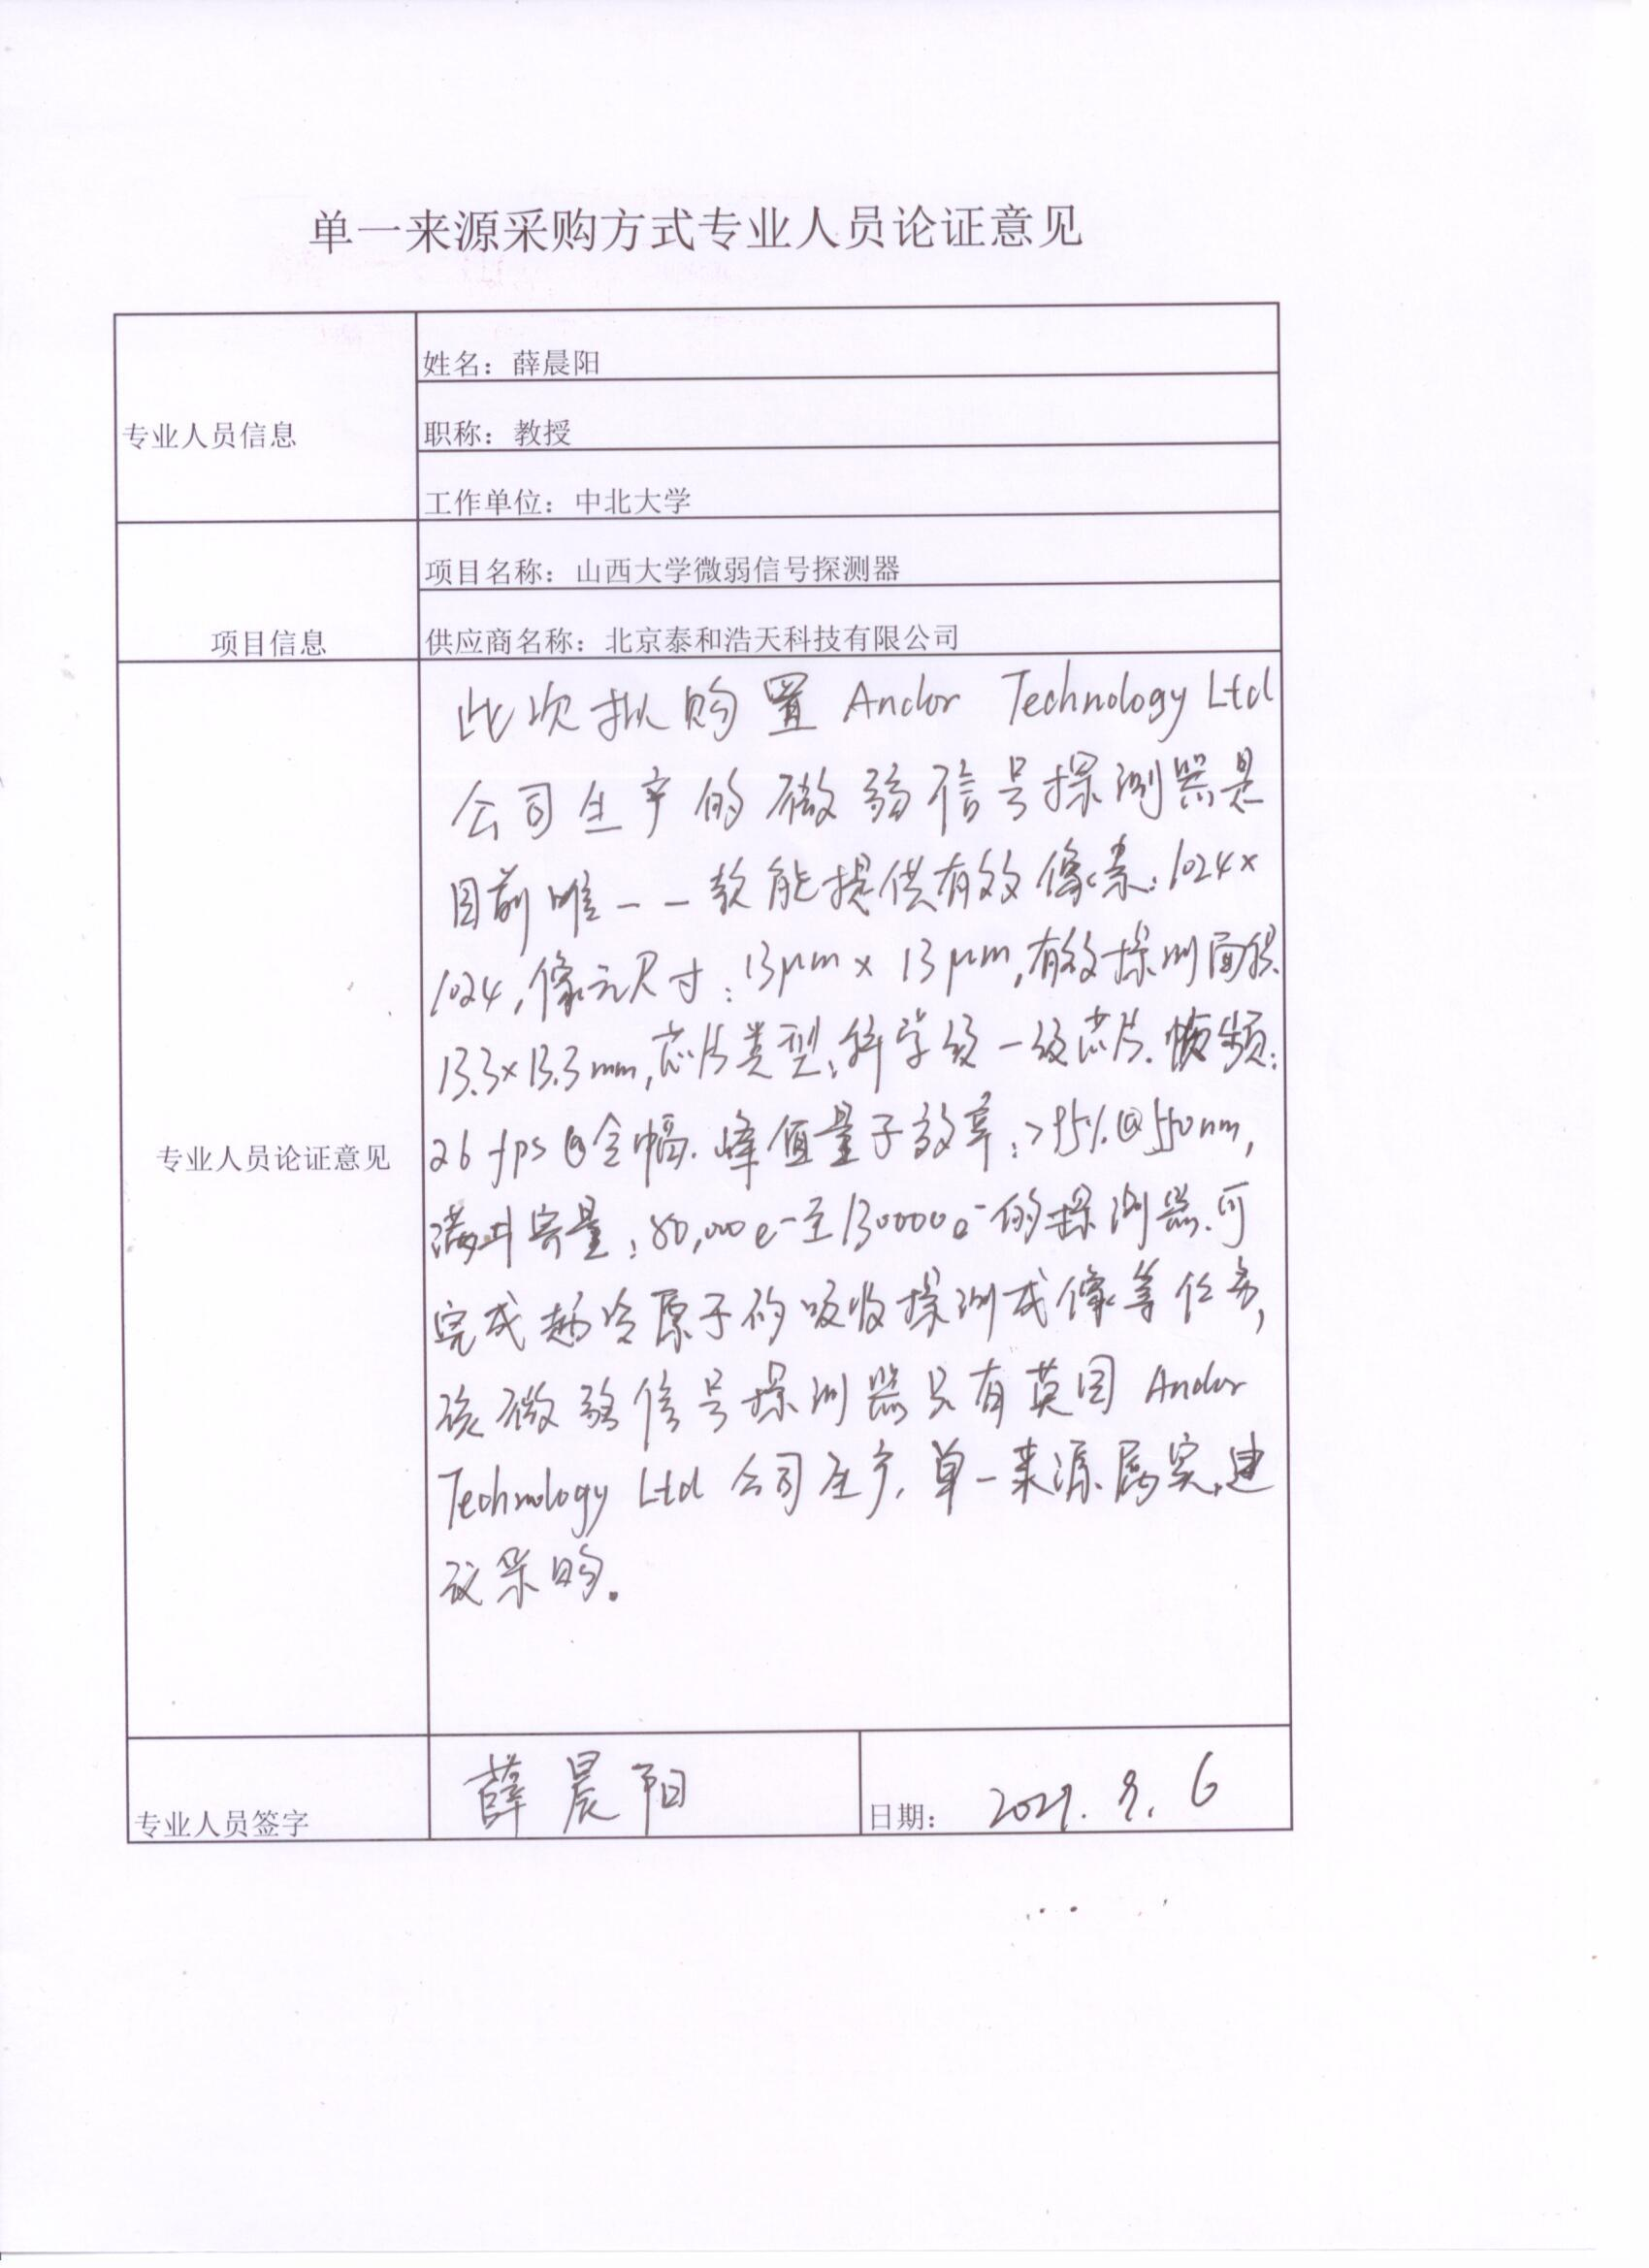 单一来源采购方式专业人员论证意见
专业人员信息
姓名：薛晨阳
职称：教授
工作单位：中北大学
项目信息
项目名称：山西大学微弱信号探测器
供应商名称：北京泰和浩天科技有限公司
专业人员论证意见
此次拟购置 Andor Technology Ltd
公司生产的微弱信号探测器是
目前唯一一款能提供有效像素：1024×
1024，像元尺寸：13μm×13μm，有效探测面积
13.3×13.3mm，芯片类型：科学级一级芯片．帧频：
26fps@全幅．峰值量子效率：>95%@550nm，
满井容量：80,000e⁻至130000e⁻的探测器．可
完成超冷原子的吸收探测成像等任务，
该微弱信号探测器只有英国 Andor
Technology Ltd 公司生产，单一来源属实，建
议采购。
专业人员签字
薛晨阳
日期：
2021.9.6